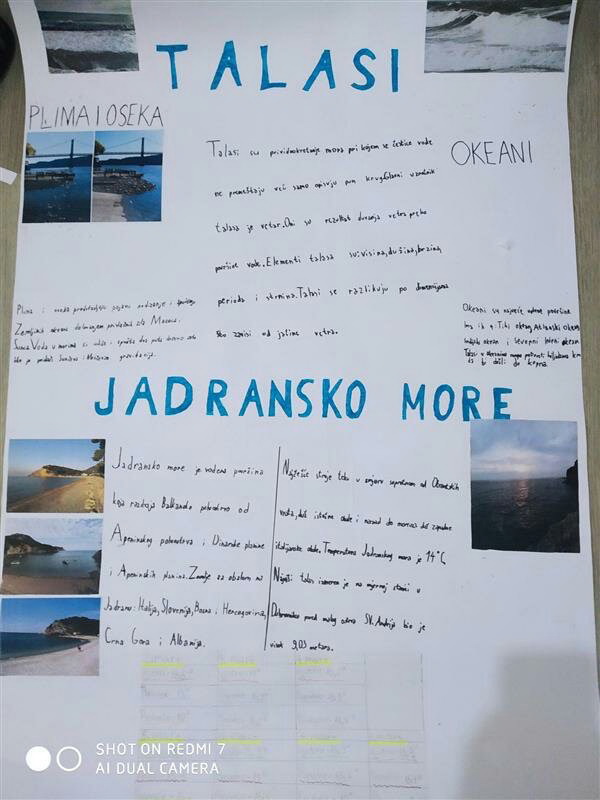 TALASI
PLIMA I OSEKA
OKEANI
Talasi su prividno kretanje mora pri kojem se čestice vode
ne premeštaju već samo opisuju pun krug. Glavni uzročnik
talasa je vetar. Oni su rezultat duvanja vetra preko
površine vode. Elementi talasa su: visina, dužina, brzina,
perioda i strmina. Talasi se razlikuju po dimenzijama
što zavisi od jačine vetra.
Plima i oseka predstavljaju pojavu podizanja i
Zemljinih okeana delovanjem privlačnih sila Meseca
i Sunca. Voda u morima se i spušta dva puta dnevno
gravitacija.
Okeani su najveće vodene površine
Tihi okean, Atlanski okean
Indijski okean i Severni ledeni okean
Talasi u okeanima mogu
da bi došli do kopna
JADRANSKO MORE
Jadransko more je vodena površina
koja razdvaja Balkansko poluostrvo od
Apeninskog poluostrva i Dinarske planine
i Apeninskih planina. Zemlje sa obalom na
Jadranu: Italija, Slovenija, Bosna i Hercegovina,
Crna Gora i Albanija.
Najčešće struje teku u smjeru suprotnom od
duž istočne obale i nazad do moreuza duž zapadne
italijanske obale. Temperatura Jadranskog mora je 14°C
Najviši talas izmeren je na mjernoj stanici u
Dubrovniku pored malog ostrva SV. Andrija bio je
visok 9,03 metara.
SHOT ON REDMI 7
AI DUAL CAMERA